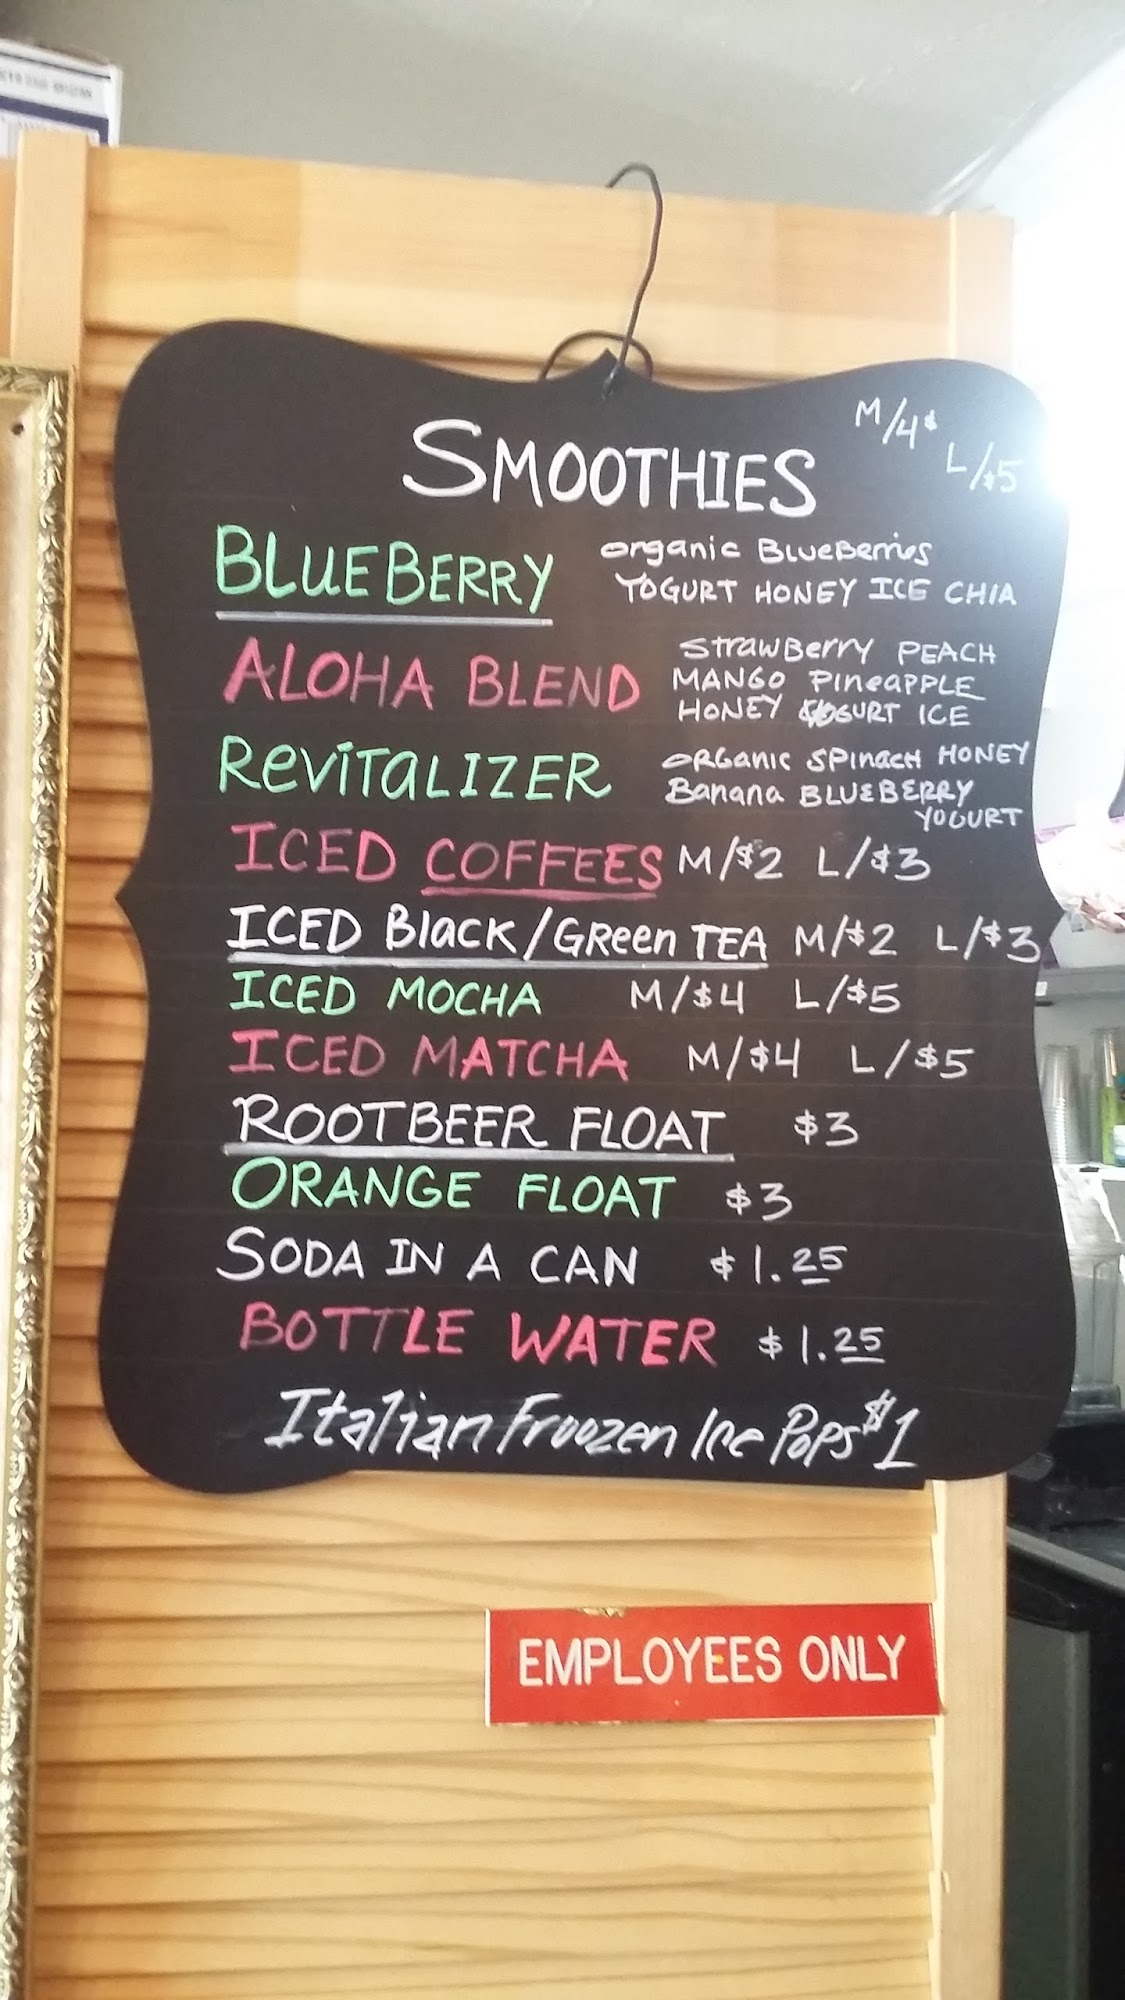 SMOOTHIES M/4$ L/$5
BLUEBERRY organic BLUEBerries
YOGURT HONEY ICE CHIA
ALOHA BLEND StrawBerry PEACH
MANGO PineaPPLE
HONEY YOGURT ICE
ReViTaLIZER ORGanic SPinacH HONEY
Banana BLUEBERRY
YOGURT
ICED COFFEES M/$2 L/$3
ICED Black/GReen TEA M/$2 L/$3
ICED MOCHA M/$4 L/$5
ICED MATCHA M/$4 L/$5
ROOTBEER FLOAT $3
ORANGE FLOAT $3
SODA IN A CAN $1.25
BOTTLE WATER $1.25
Italian Froozen Ice Pops $1
EMPLOYEES ONLY